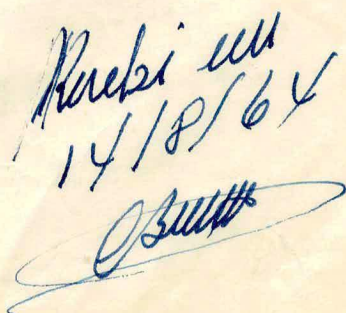 Recebi em
14/8/64